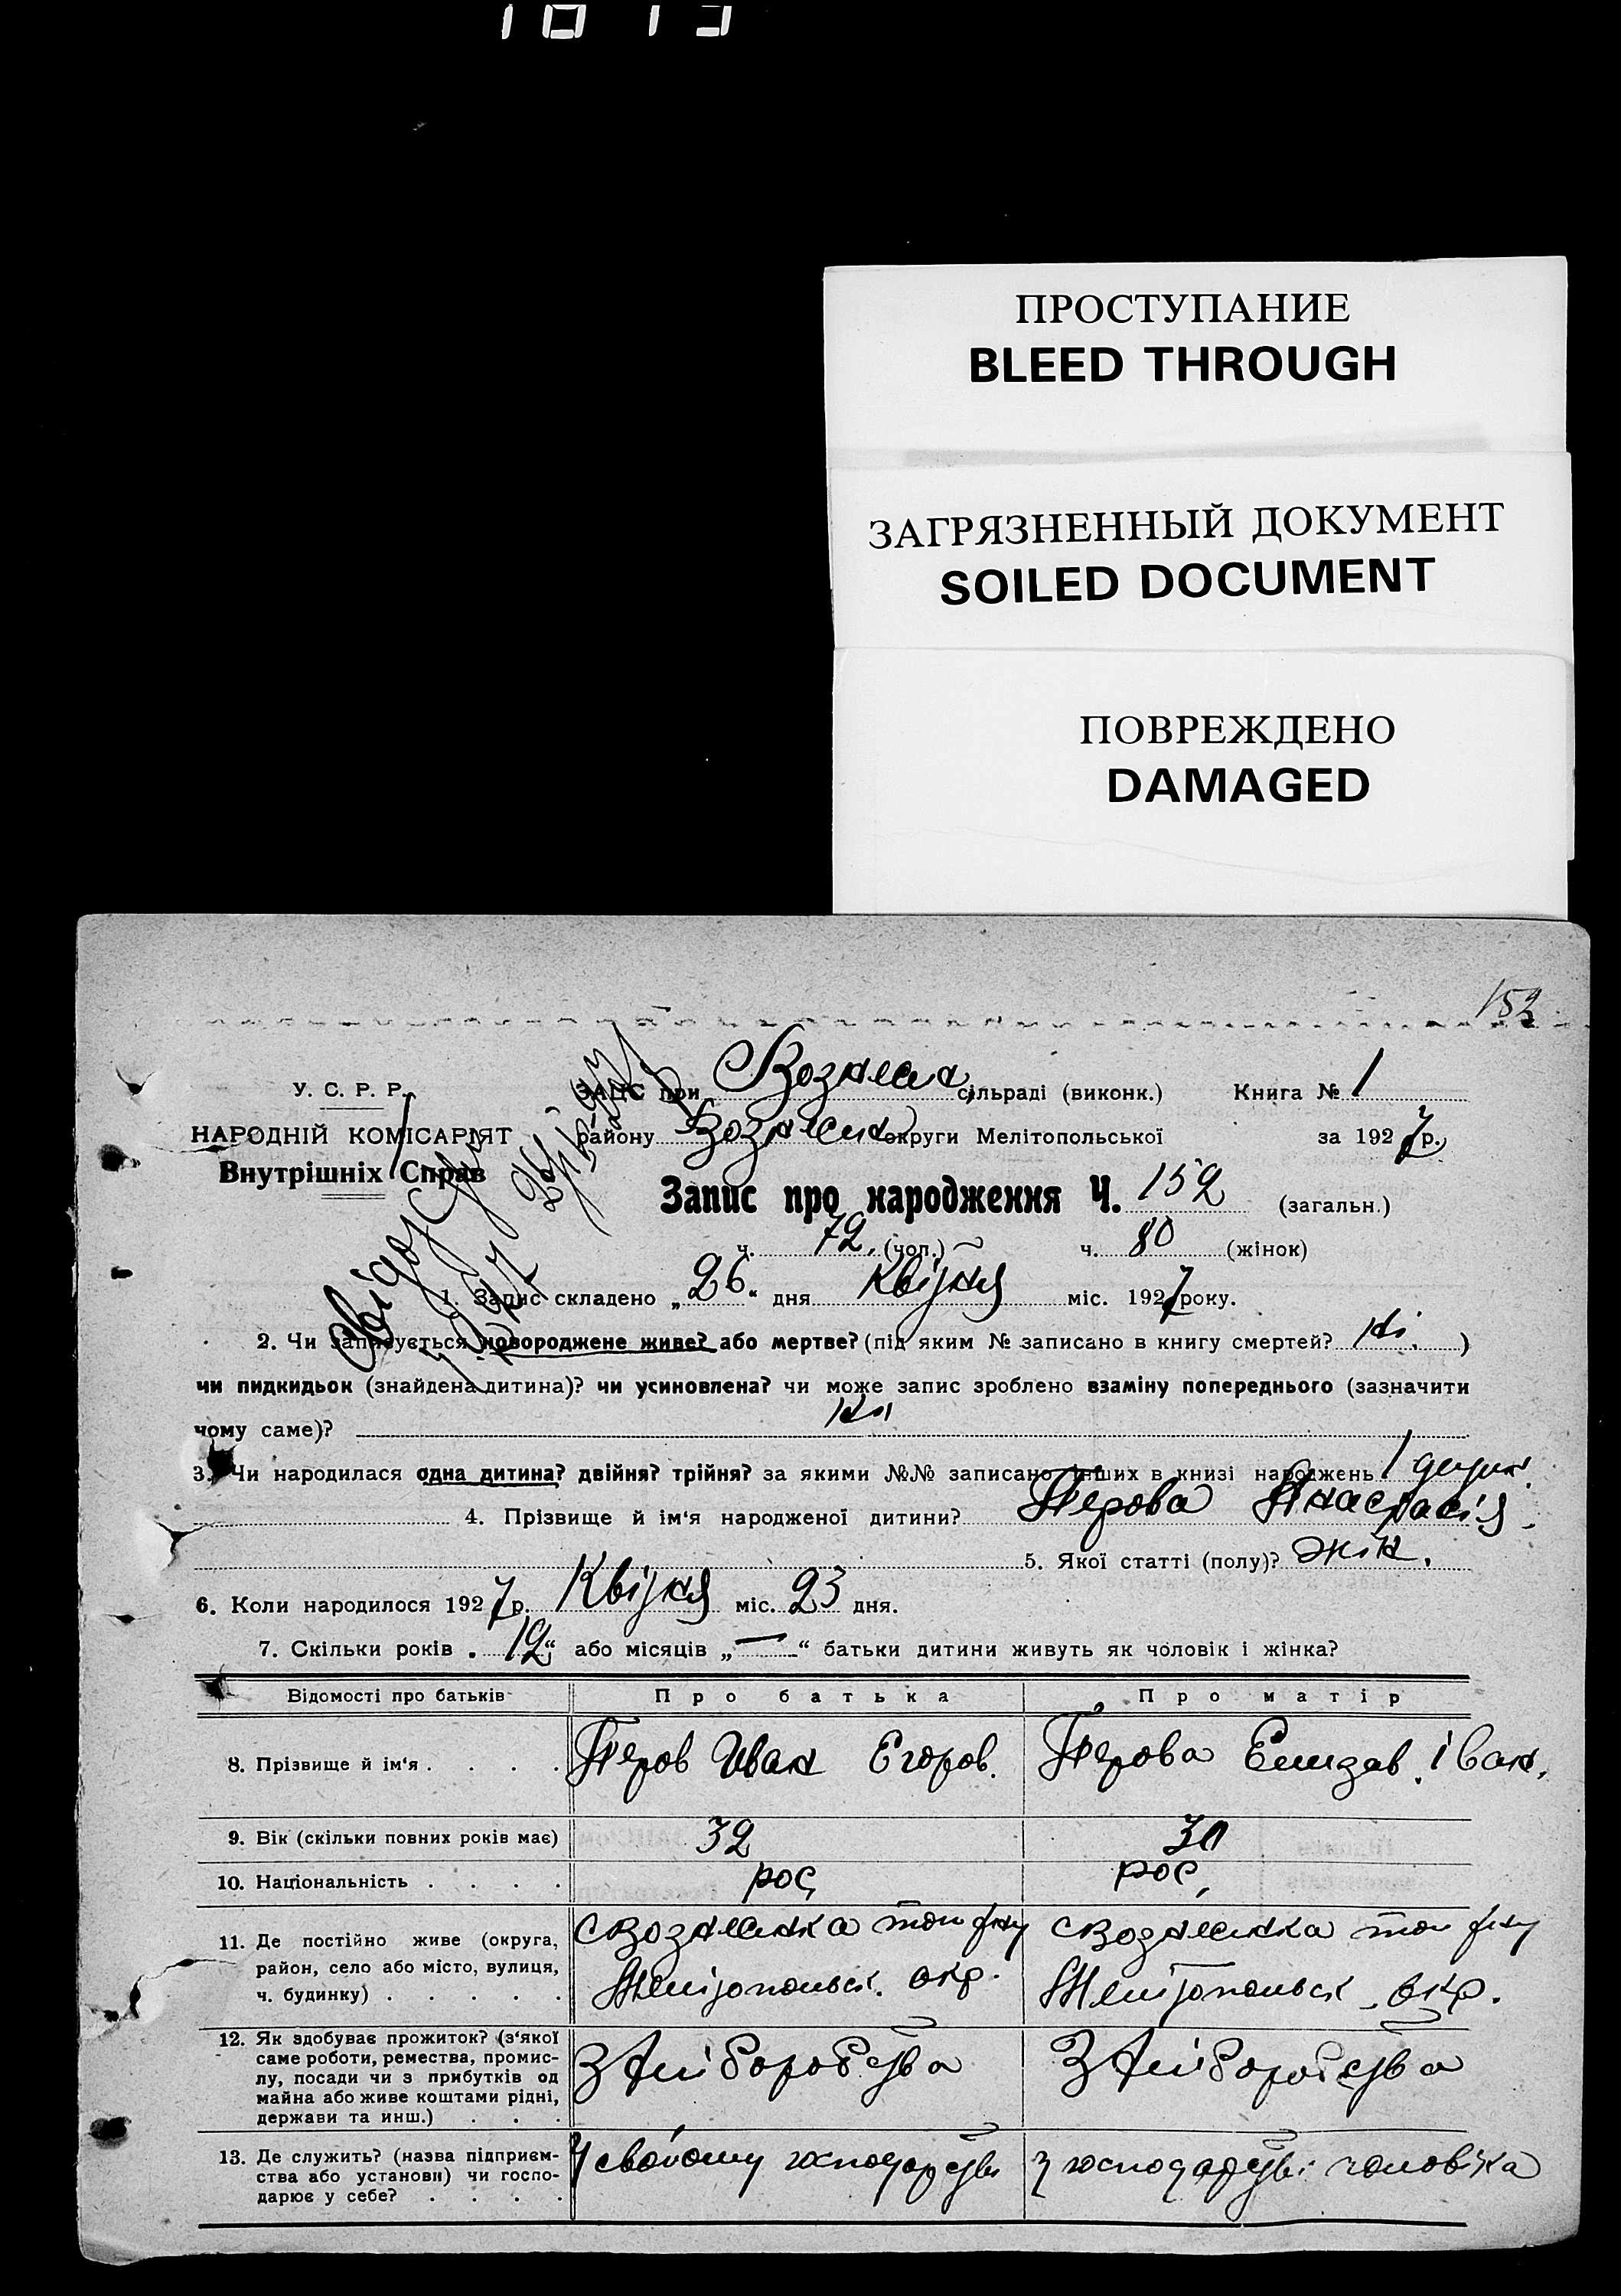 ПРОСТУПАНИЕ
BLEED THROUGH
ЗАГРЯЗНЕННЫЙ ДОКУМЕНТ
SOILED DOCUMENT
ПОВРЕЖДЕНО
DAMAGED
152
У. С. Р. Р.
НАРОДНІЙ КОМІСАРІЯТ
Внутрішніх Справ
ЗАЦС при Вознесен, сільраді (виконк.) Книга № 1
району Вознесен округи Мелітопольської за 1927 р.
Запис про народження Ч. 152 (загальн.)
ч. 72. (чол.) ч. 80 (жінок)
1. Запис складено „26“ дня Квітня міс. 1927 року.
2. Чи записується новороджене живе? або мертве? (під яким № записано в книгу смертей? Ні. )
чи пидкидьок (знайдена дитина)? чи усиновлена? чи може запис зроблено взаміну попереднього (зазначити
чому саме)? Ні
3. Чи народилася одна дитина? двійня? трійня? за якими №№ записано інших в книзі народжень 1 дитин.
4. Прізвище й ім'я народженої дитини? Перова Анастасія.
5. Якої статті (полу)? жін.
6. Коли народилося 1927 р. Квітня міс. 23 дня.
7. Скільки років „12“ або місяців „—“ батьки дитини живуть як чоловік і жінка?
Відомості про батьків Про батька Про матір
8. Прізвище й ім'я . . . . Перов Иван Егоров. Перова Елизав. Іван.
9. Вік (скільки повних років має) 32 30
10. Національність . . . . рос. рос.
11. Де постійно живе (округа, район, село або місто, вулиця, ч. будинку) . . . . .
с Вознесенка тож р-ну Мелітопольск. окр.
с Вознесенка тож р-ну Мелітопольск. окр.
12. Як здобуває прожиток? (з'якої саме роботи, ремества, промислу, посади чи з прибутків од майна або живе коштами рідні, держави та инш.) . . .
З хліборобства
З хліборобства
13. Де служить? (назва підприємства або установи) чи господарює у себе? . . . .
У своєму господарстві
у господарстві чоловіка